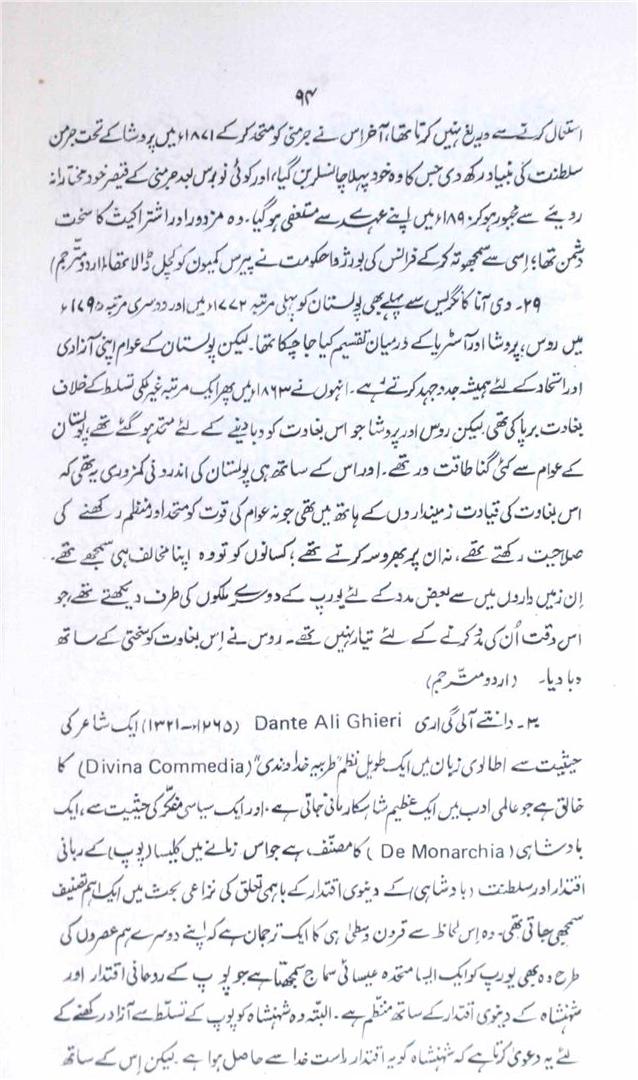 ۹۴
استعمال کرنے سے دریغ نہیں کرتا تھا، آخر اس نے جرمنی کو متحد کر کے ۱۸۷۱ء میں پروشا کے تحت جرمن
سلطنت کی بنیاد رکھ دی جس کا وہ خود پہلا چانسلر بن گیا، اور کوئی نو برس بعد جرمنی کے قیصر خود مختارانہ
رویئے سے مجبور ہو کر ۱۸۹۰ء میں اپنے عہدے سے مستعفی ہو گیا۔ وہ مزدور اور اشتراکیت کا سخت
دشمن تھا؛ اِسی سے سمجھوتہ کر کے فرانس کی بورژوا حکومت نے پیرس کمیون کو کچل ڈالا تھا۔ (اردو مترجم)
۲۹۔ وی آنا کانگریس سے پہلے بھی پولستان کو پہلی مرتبہ ۱۷۷۲ء میں اور دوسری مرتبہ ۱۷۹۵ء
میں روس، پروشا اور آسٹریا کے درمیان تقسیم کیا جا چکا تھا۔ لیکن پولستان کے عوام اپنی آزادی
اور اتحاد کے لئے ہمیشہ جدوجہد کرتے رہے۔ انہوں نے ۱۸۶۳ء میں پھر ایک مرتبہ غیر ملکی تسلط کے خلاف
بغاوت برپا کی تھی لیکن روس اور پروشا جو اس بغاوت کو دبا دینے کے لئے متحد ہو گئے تھے، پولستان
کے عوام سے کئی گنا طاقت ور تھے۔ اور اس کے ساتھ ہی پولستان کی اندرونی کمزوری یہ تھی کہ
اس بغاوت کی قیادت زمینداروں کے ہاتھ میں تھی جو نہ عوام کی قوت کو متحد اور منظم رکھنے کی
صلاحیت رکھتے تھے، نہ ان پر بھروسہ کرتے تھے، کسانوں کو تو وہ اپنا مخالف ہی سمجھے تھے۔
اِن زمیں داروں میں سے بعض مدد کے لئے یورپ کے دوسرے ملکوں کی طرف دیکھتے تھے، جو
اس وقت اُن کی مدد کرنے کے لئے تیار نہیں تھے۔ روس نے اِس بغاوت کو سختی کے ساتھ
دبا دیا۔ (اردو مترجم)
۳۰۔ دانتے آلی گی اری Dante Ali Ghieri (۱۲۶۵ء-۱۳۲۱) ایک شاعر کی
حیثیت سے اطالوی زبان میں ایک طویل نظم "طربیہ خداوندی" (Divina Commedia) کا
خالق ہے جو عالمی ادب میں ایک عظیم شاہکار مانی جاتی ہے۔ اور ایک سیاسی مفکر کی حیثیت سے، ایک
بادشاہی (De Monarchia) کا مصنف ہے جو اس زمانے میں کلیسا (پوپ) کے ربانی
اقتدار اور سلطنت (بادشاہی) کے دنیوی اقتدار کے باہمی تعلق کی نزاعی بحث میں ایک اہم تصنیف
سمجھی جاتی تھی۔ وہ اِس لحاظ سے قرون وسطیٰ ہی کا ایک ترجمان ہے کہ اپنے دوسرے ہم عصروں کی
طرح وہ بھی یورپ کو ایک ایسا متحدہ عیسائی سماج سمجھتا ہے جو پوپ کے روحانی اقتدار اور
شہنشاہ کے دنیوی اقتدار کے ساتھ منظم ہے۔ البتہ وہ شہنشاہ کو پوپ کے تسلط سے آزاد رکھنے کے
لئے یہ دعویٰ کرتا ہے کہ شہنشاہ کو یہ اقتدار راست خدا سے حاصل ہوا ہے۔ لیکن اِس کے ساتھ